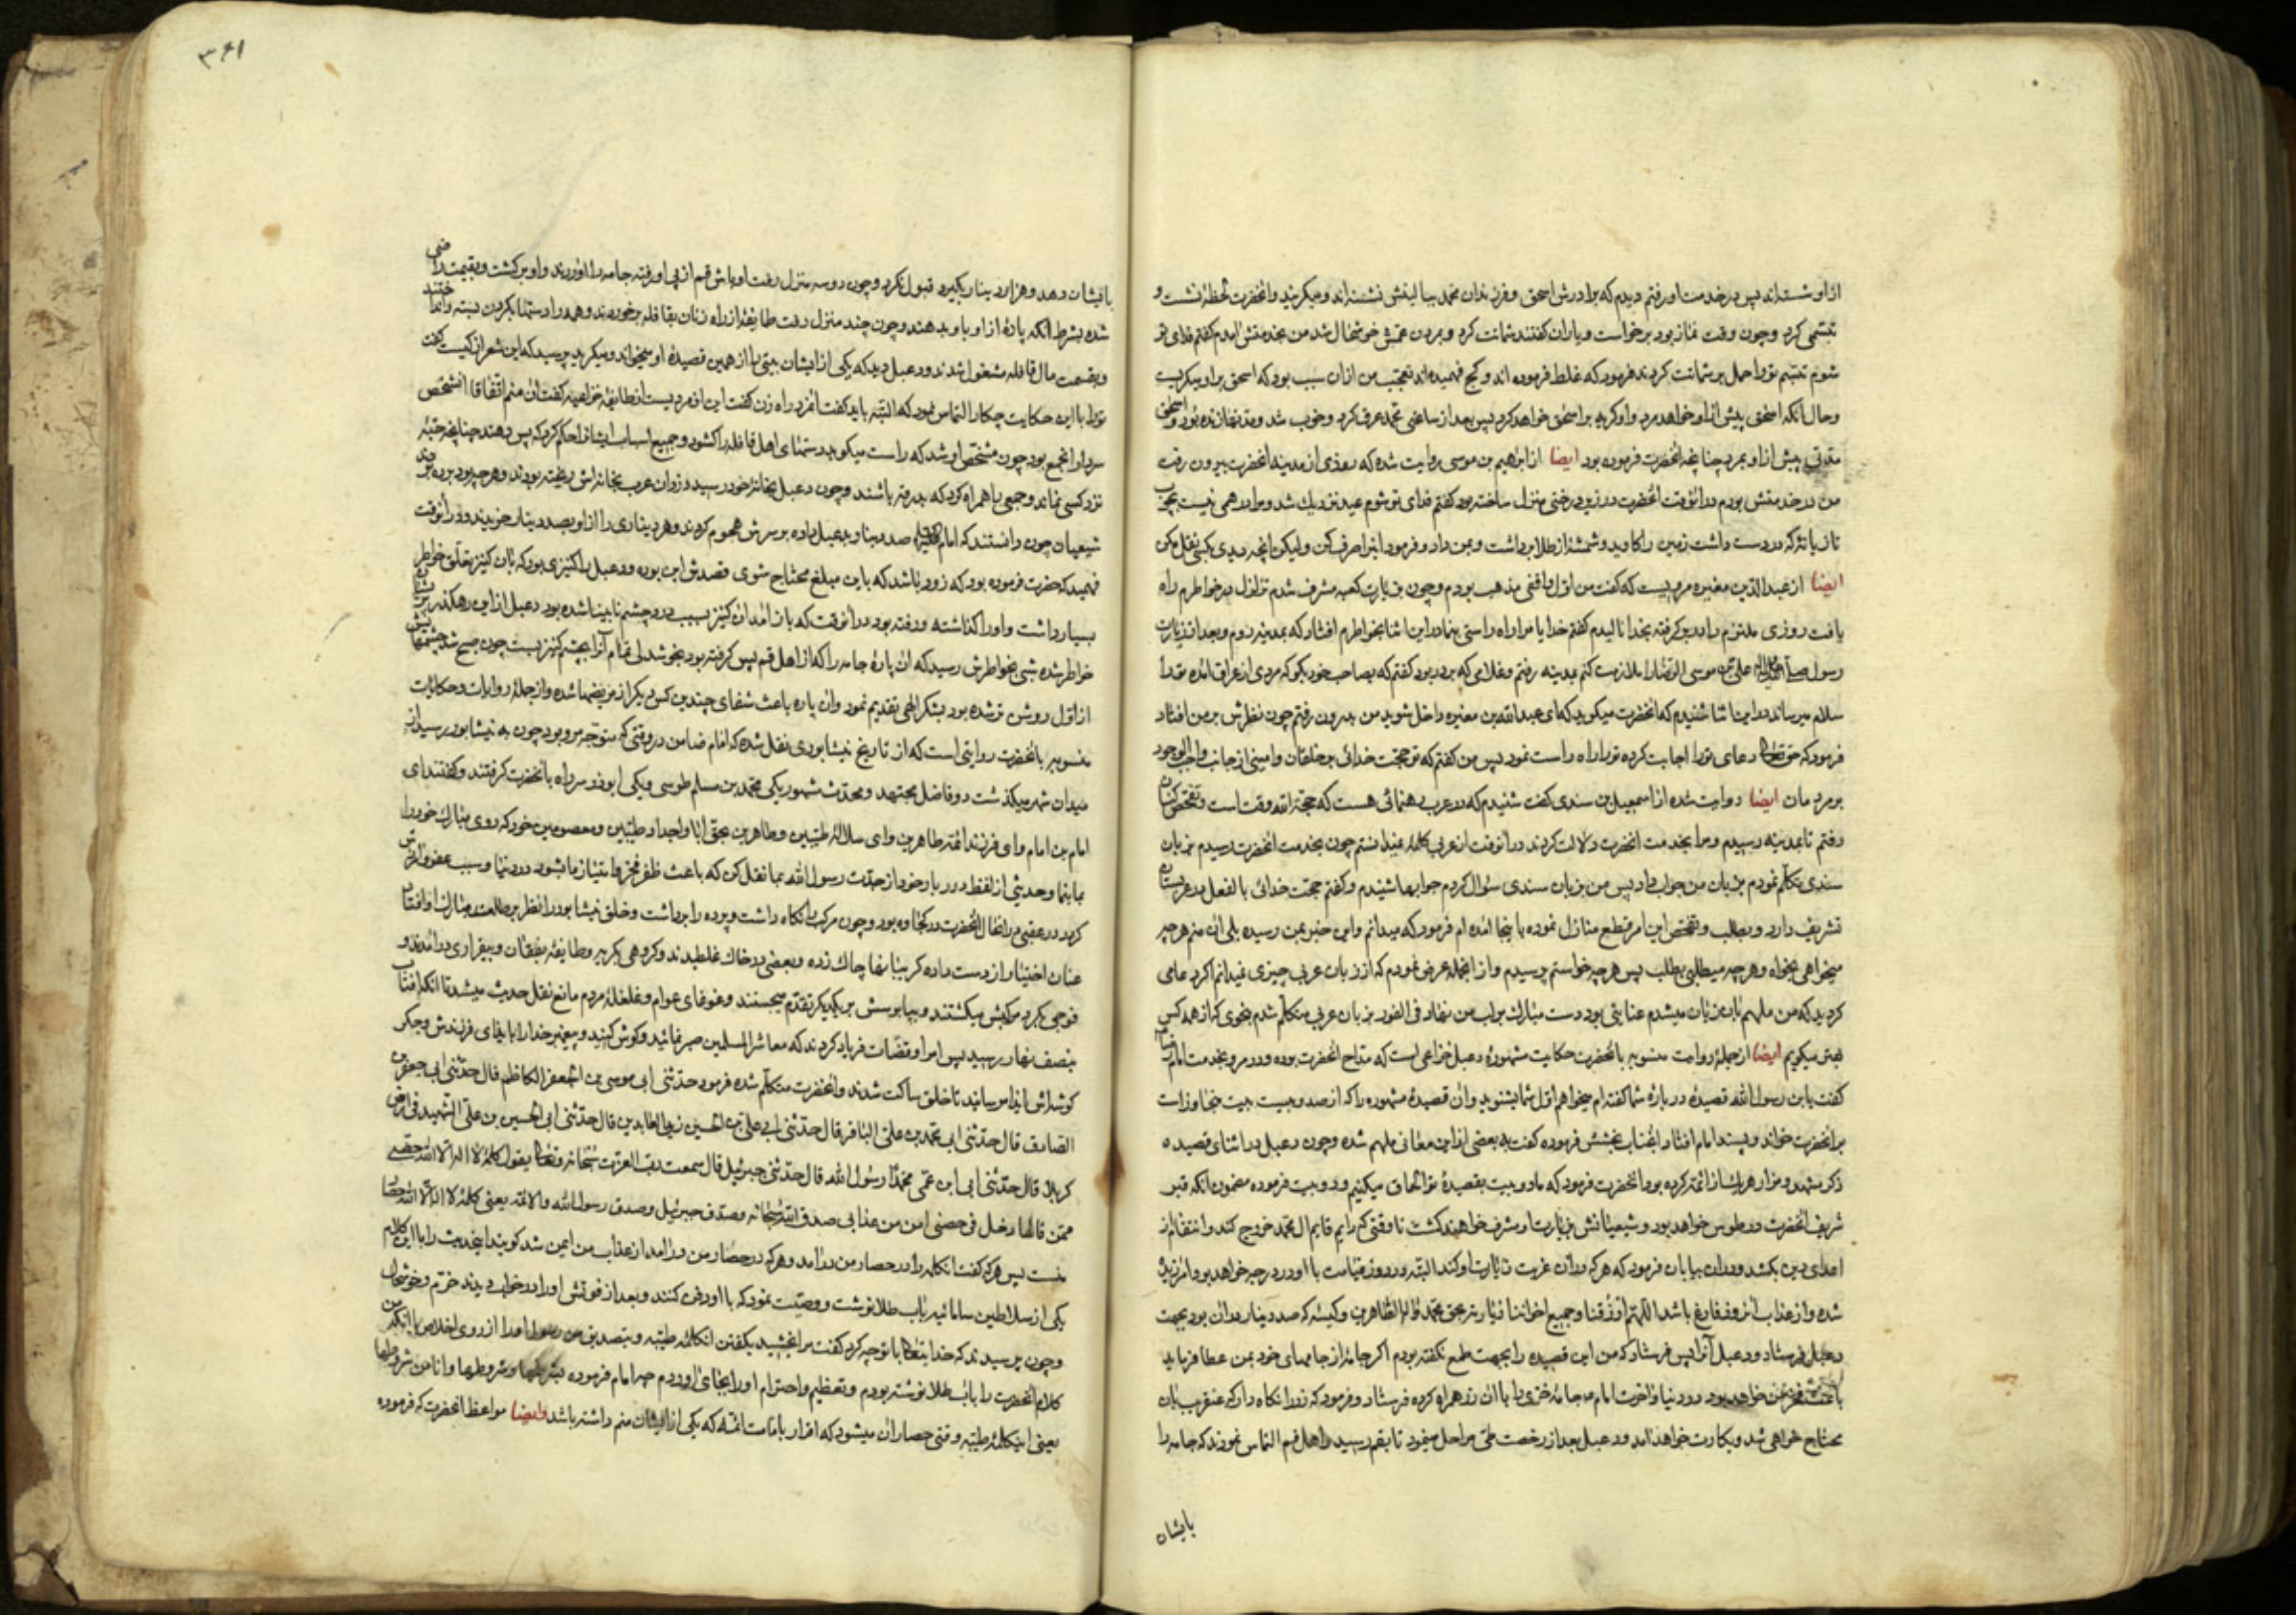 از او شسته‌اند پس در خدمت او رفتم دیدم که برادرش اسحق و فرزندان محمد ببالینش نشسته‌اند و میکریند و انحضرت لحظهٔ نشست و
تبسّمی کرد و چون وقت نماز بود برخواست و یاران کفتند شماتت کرد و بمردن عمّش خوشحال شد من بخدمتش امدم کفتم فدای تو
شوم تبسّم تو را حمل بر شماتت کردند فرمود که غلط فرموده اند و کج فهمیده‌اند تعجّب من ازان سبب بود که اسحق بر او میکریست
و حال آنکه اسحق پیش از او خواهد مرد و او کریه بر اسحق خواهد کرد پس بعد از ساعتی محمد عرق کرد و خوب شد و مدتها زنده بود و اسحق
مدّتی پیش از او بمرد چنانچه انحضرت فرموده بود ایضا از ابراهیم بن موسی روایت شده که روزی از مدینه انحضرت بیرون رفت
من در خدمتش بودم در انوقت انحضرت در زیر درختی منزل ساخته بود کفتم فدای تو شوم عید نزدیك شد و مرا درهمی نیست بچوب
تازیانه که در دست داشت زمین را کاوید و شمشهٔ از طلا برداشت و بمن داد و فرمود اینرا صرف کن و لیکن انچه دیدی بکسی نقل مکن
ایضا از عبد الدین مغیره مرویست که کفت من اوّل واقفی مذهب بودم و چون بزیارت کعبه مشرف شدم تزلزل در خواطرم راه
یافت روزی ملتزم را در بر کرفته بخدا نالیدم کفتم خدایا مرا راه راستی بنما در این اثنا بخواطرم افتاد که بمدینه روم و بعد از زیارت
رسول علی بن موسی الرّضا را ملازمت کنم بمدینه رفتم و غلامی که بر در بود کفتم که بصاحب خود بکو که مردی از عراق امده تو را
سلام میرساند در این اثنا شنیدم که انحضرت میکوید که ای عبد الله بن مغیره داخل شو پس من بدرون رفتم چون نظرش بر من افتاد
فرمود که حق تعالی دعای تو را اجابت کرده تو را راه راست نمود پس من کفتم که تو حجّت خدائی بر خلقان و امینی از جانب واجب الوجود
بر مردمان ایضا روایت شده از اسمعیل بن سندی کفت شنیدم که در عرب رهنمائی هست که حجّة الله وقت است و تفحّص کنان
رفتم تا بمدینه رسیدم و مرا بخدمت انحضرت دلالت کردند در انوقت از عربی کلمهٔ نمیدانستم چون بخدمت انحضرت رسیدم بزبان
سندی تکلّم نمودم بزبان من جواب داد پس من بزبان سندی سؤال کردم جوابها شنیدم و کفتم حجت خدائی بالفعل در عربستان
تشریف دارد و بطلب و تفحّص این امر قطع منازل نموده باینجا امده ام فرمود که میدانم و این خبر بمن رسیده بلی ان منم هرچه
میخواهی بخواه و هرچه میطلبی بطلب پس هرچه خواستم پرسیدم و از انجمله عرض نمودم که از زبان عربی چیزی نمیدانم اکر دعای
کردید که من ملهم بان زبان میشدم عنایتی بود دست مبارك بر لب من نهاد فی الفور بزبان عربی متکلّم شدم بنحوی که از همه کس
بهتر میکویم ایضا از جملهٔ روایت منسوبه بانحضرت حکایت مشهورهٔ دعبل خزاعی است که مدّاح انحضرت بوده و در مرو بخدمت امام رضا
کفت یابن رسول الله قصیدهٔ در بارهٔ شما کفته ام میخواهم اوّل شما بشنوید و ان قصیدهٔ مشهوره را که از صد و بیست بیت متجاوز است
بر انحضرت خواند و پسند امام افتاد انجناب بخشش فرموده کفت به بعضی از این معانی ملهم شده و چون دعبل در اثنای قصیده
ذکر مشهد و مزار هریك از ائمّه کرده بود انحضرت فرمود که ما دو بیت بقصیدهٔ تو الحاق میکنیم و دو بیت فرموده مضمون انکه قبر
شریف انحضرت در طوس خواهد بود و شیعیانش بزیارت او مشرف خواهند کشت تا وقتی که رایم قایم ال محمد خروج کند و انتقام از
اعدای دین بکشد و در ان بیابان فرمود که هر که در ان غربت زیارت او کند البته در روز قیامت با او در درجه خواهد بود و امرزیدهٔ
شده و از عذاب انروز فارغ باشد اللّهم ارزقنا و جمیع اخواننا زیارته بحق محمّد و اله الطّاهرین و کیسهٔ که صد دینار در ان بود بجهت
دعبل فرستاد و دعبل آنرا پس فرستاد که من این قصیده را بجهت طمع نکفته بودم اکر جامهٔ از جامهای خود بمن عطا فرماید
باعث فخر من خواهد بود در دنیا و اخرت امام جامهٔ خزی را با ان زر همراه کرده فرستاد و فرمود که زر را نکاه دار که عنقریب بان
محتاج خواهی شد و بکارت خواهد امد و دعبل بعد از رخصت طیّ مراحل مینمود تا بقم رسید و اهل قم التماس نمودند که جامه را
بایشان
۳۶۱
بایشان دهد و هزار دینار بکیرد قبول نکرد و چون دو سه منزل رفت اوباش قم از پی او رفته جامه را اوردند و او بر کشت و بقیمت راضی
شده بشرط انکه پارهٔ از او باو بدهند و چون چند منزل رفت طایفهٔ از راه زنان بقافله برخوردند و همه را دستها بکردن بسته و انداختند
و بقسمت مال قافله مشغول شدند و دعبل دید که یکی از ایشان بیتی را از همین قصیدهٔ او میخواند و میکرید پرسید که این شعر از کیست کفت
تو را با این حکایت چکار التماس نمود که البته باید کفت انمرد راه زن کفت این از مردیست از طایفهٔ خزاعیه کفت ان منم اتفاقا انشخص
سردار انجمع بود چون مشخّص او شد که راست میکوید دستهای اهل قافله را کشود و جمیع اسباب ایشانرا حکم کرد که پس دهند چنانچه حبّهٔ
نزد کسی نماند و جمعی را همراه کرد که بدرقه باشند و چون دعبل بخانهٔ خود رسید دزدان عرب بخانه‌اش ریخته بودند و هرچه بود برده بودند
شیعیان چون دانستند که امام صد دینار بدعبل داده بر سرش هجوم کردند و هر دیناری را از او بصد دینار خریدند و در انوقت
فهمید که حضرت فرموده بود که زود باشد که باین مبلغ محتاج شوی قصدش این بوده و دعبل را کنیزی بود که بان کنیز تعلّق خواطر
بسیار داشت و او را کذاشته و رفته بود در انوقت که باز امد ان کنیز بسبب درد چشم نابینا شده بود دعبل از این رهکذر پریشان
خواطر شده شبی بخواطرش رسید که ان پارهٔ جامه را که از اهل قم پس کرفته بود بخوشدلی تمام آنرا بچشم کنیز بست چون صبح شد چشمهایش
از اوّل روشن تر شده بود بشکر الهی تقدیم نمود و ان پاره باعث شفای چندین کس دیکر از مریضها شده و از جملهٔ روایات و حکایات
منسوبه بانحضرت روایتی است که از تاریخ نیشابوری نقل شده که امام ضامن در وقتی که متوجّه مرو بود چون به نیشابور رسید از
میدان شهر میکذشت دو فاضل مجتهد و محدّث مشهور یکی محمّد بن مسلم طوسی و یکی ابوذر سر راه بانحضرت کرفتند و کفتند ای
امام بن امام و ای فرزند ائمّه طاهرین و ای سلالهٔ طیّبین و طاهرین بحق ابا و اجداد طیّبین و معصومین خود که روی مبارك خود را
بما بنما و حدیثی از لفظ درر بار خود از جدّت رسول الله بما نقل کن که باعث ظفر فخر و امتیاز ما شود در دنیا و سبب عفو و امرزش
کردد در عقبی در انحال انحضرت در کجاوه بود و چون مرکب را نکاه داشت و پرده را برداشت و خلق نیشابور را نظر بر طلعت مبارك او افتاد
عنان اختیار از دست داده کریبانها چاك زده و بعضی در خاك غلطیدند و کروهی بکریه و طایفهٔ بفغان و بیقراری درامدند و
فوجی بکرد مرکبش میکشتند و بپابوسش بر یکدیکر تقدّم میجستند و غوغای عوام و غلغلهٔ مردم مانع نقل حدیث میشد تا انکه افتاب
بنصف نهار رسید پس امرا و قضات فریاد کردند که معاشر المسلمین صبر نمائید و کوش کنید و پیغمبر خدا را با یذای فرزندش و جکر
کوشه‌اش ایذا مرسانید تا خلق ساکت شدند و انحضرت متکلّم شده فرمود حدّثنی ابی موسی بن الجعفر الکاظم قال حدّثنی ابی جعفر بن
الصّادق قال حدّثنی ابی محمّد بن علی الباقر قال حدّثنی ابی علی بن الحسین زین العابدین قال حدّثنی ابی الحسین بن علی الشهید فی ارض
کربلا قال حدّثنی ابی ابن عمّی محمّدا رسول الله قال حدّثنی جبرئیل قال سمعت ربّ العزّت سبحانه و تعالی یقول کلمة لا اله الا الله حصنی
فمن قالها دخل فی حصنی امن من عذابی صدق الله سبحانه و صدق جبرئیل و صدق رسول الله و الائمّه یعنی کلمهٔ لا اله الا الله حصار
منست پس هر که کفت انکلمه را در حصار من درامد و هر که در حصار من درامد از عذاب من ایمن شد کویند اینحدیث را با این کلام
یکی از سلاطین سامانیه باب طلا نوشت و وصیّت نمود که با او دفن کنند و بعد از فوتش او را در خواب دیدند خرّم و خوشحال
و چون پرسیدند که خدایتعالی با تو چه کرد کفت مرا بخشید بکفتن انکلمهٔ طیّبه و بتصدیق من رسول او را از روی اخلاص با انکه من
کلام انحضرت را باب طلا نوشته بودم و تعظیم و احترام او را بجای اوردم چه امام فرموده بشرطها و شروطها و انا من شروطها
یعنی اینکلمهٔ طیّبه وقتی حصار ان میشود که اقرار بامامت ائمّه که یکی از ایشان منم داشته باشد و ایضا مواعظ انحضرت که فرموده